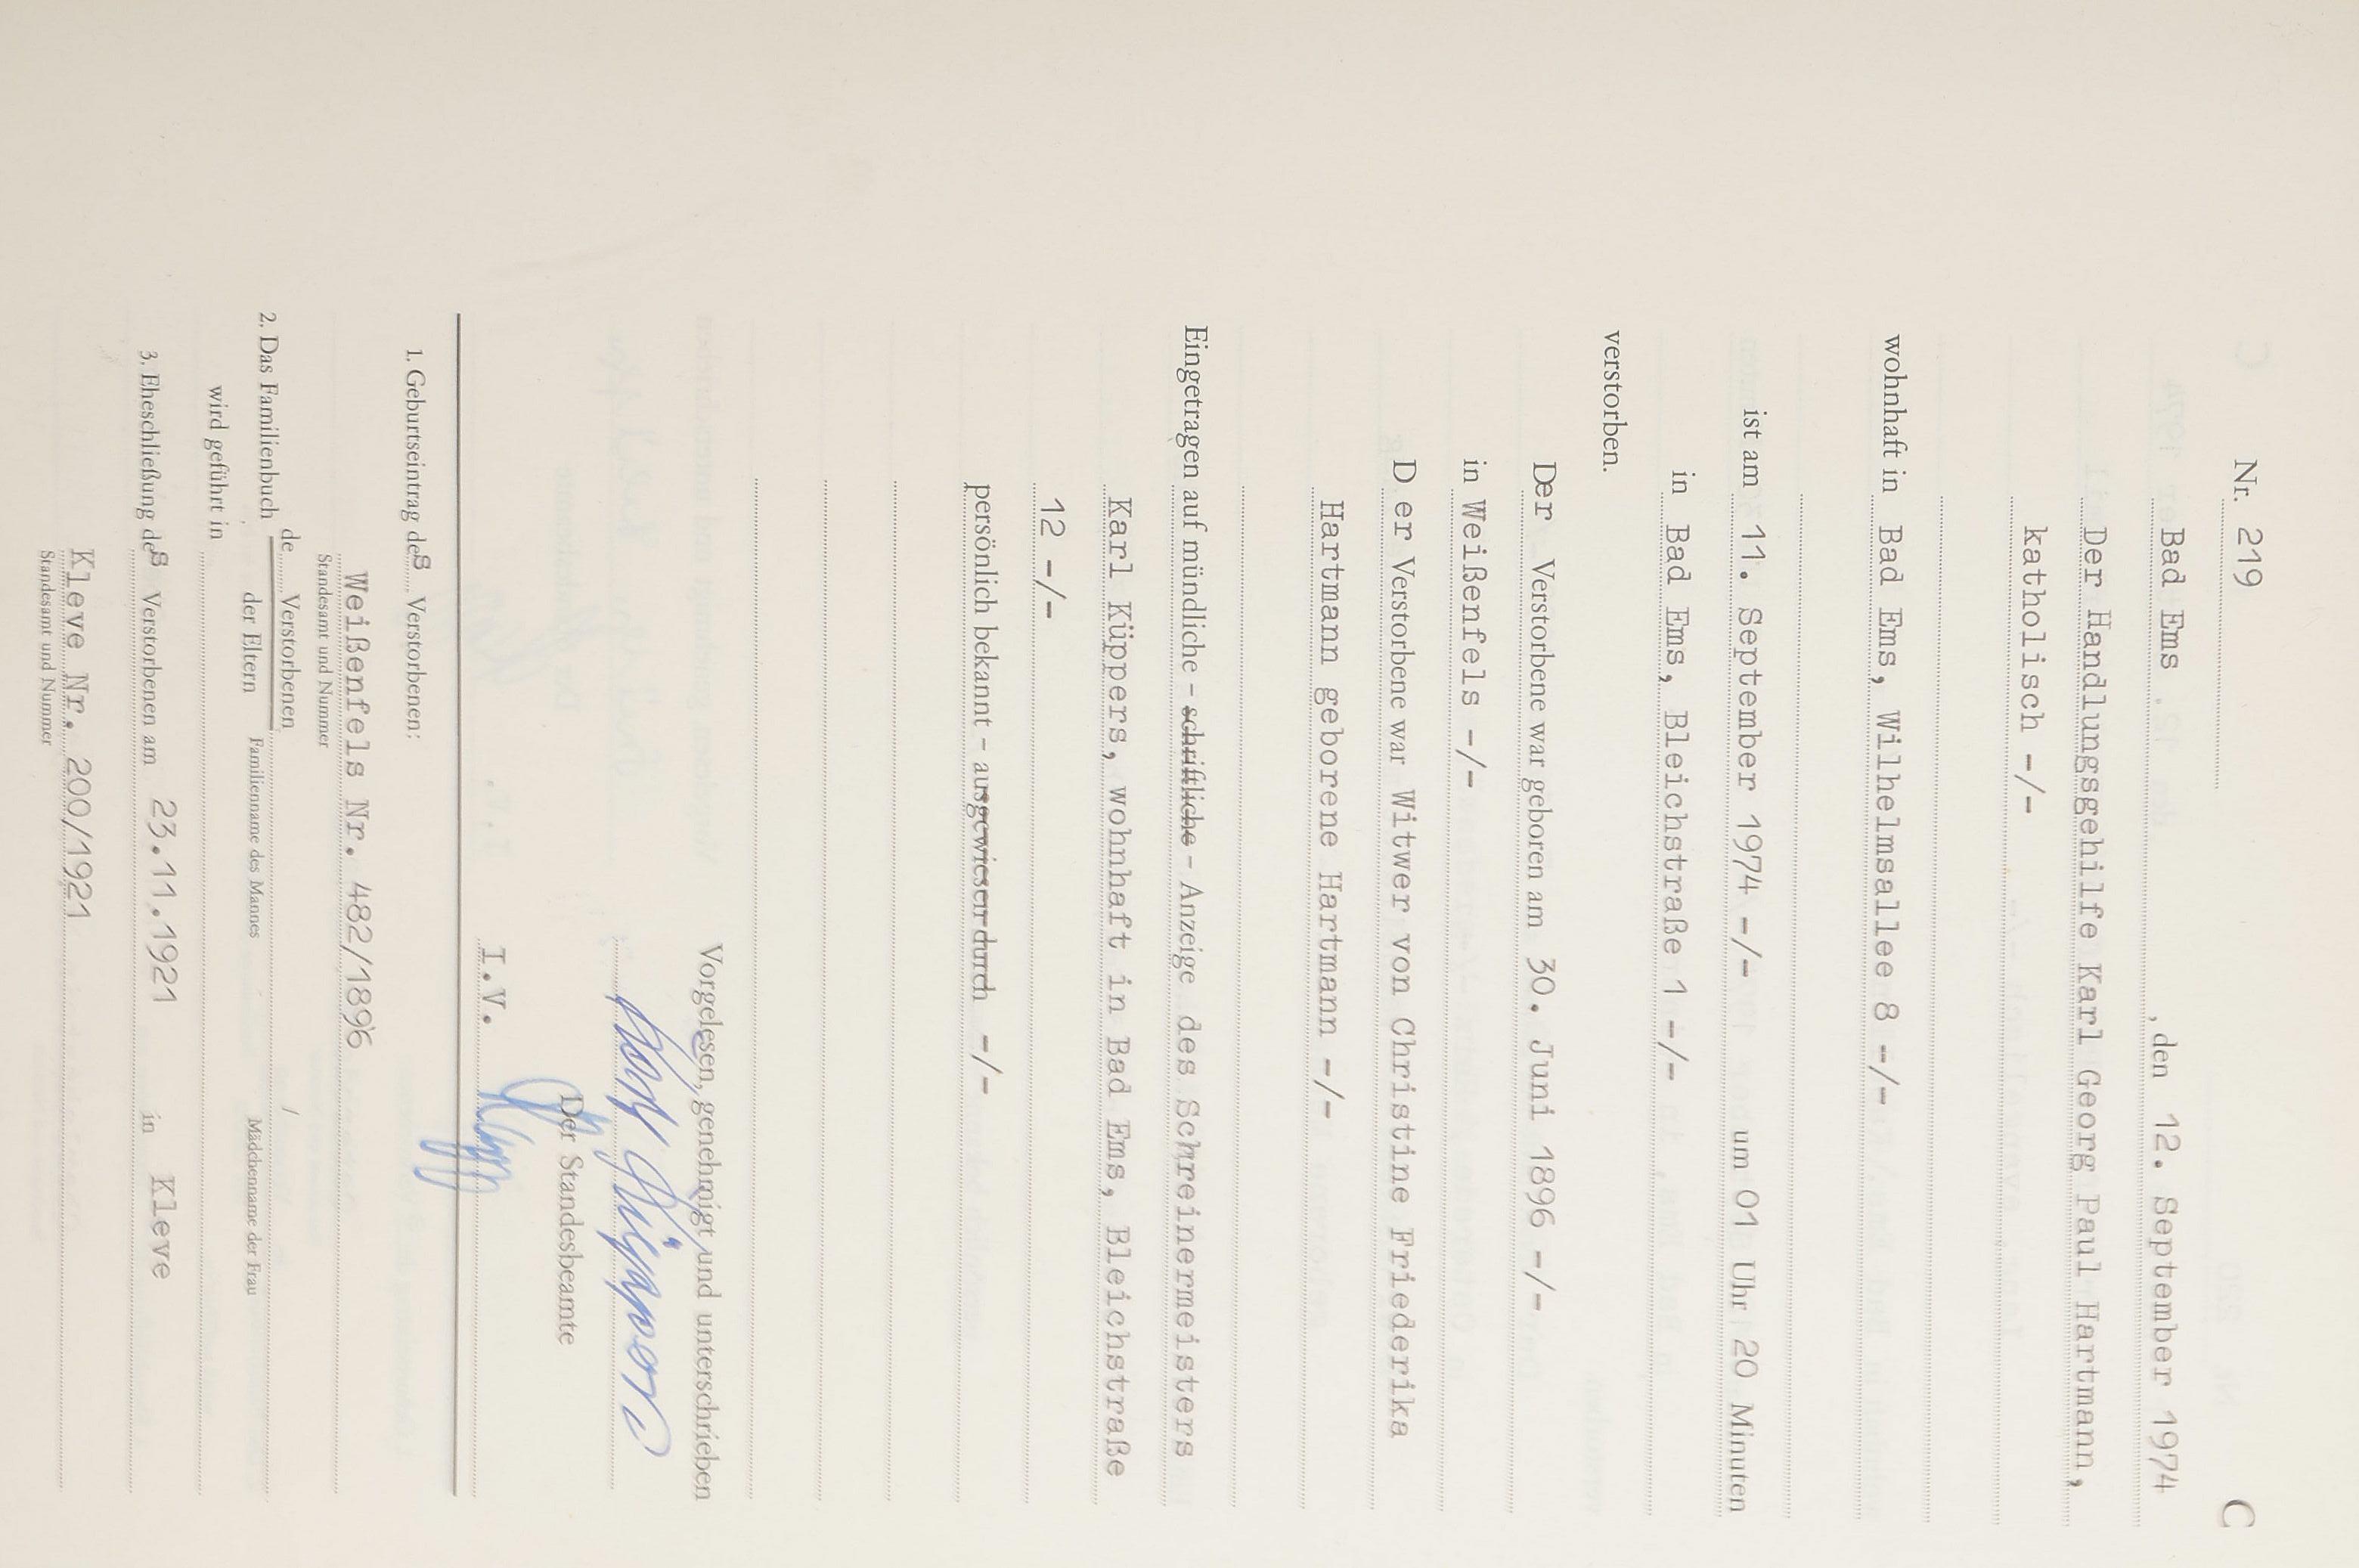 C
Nr. 219
Bad Ems, den 12. September 1974
Der Handlungsgehilfe Karl Georg Paul Hartmann,
katholisch -/-
wohnhaft in Bad Ems, Wilhelmsallee 8 -/-
ist am 11. September 1974 -/- um 01 Uhr 20 Minuten
in Bad Ems, Bleichstraße 1 -/-
verstorben.
Der Verstorbene war geboren am 30. Juni 1896 -/-
in Weißenfels -/-
D er Verstorbene war Witwer von Christine Friederika
Hartmann geborene Hartmann -/-
Eingetragen auf mündliche - schriftliche - Anzeige des Schreinermeisters
Karl Küppers, wohnhaft in Bad Ems, Bleichstraße
12 -/-
persönlich bekannt - ausgewiesen durch -/-
Vorgelesen, genehmigt und unterschrieben
Karl Küppers
Der Standesbeamte
I.V.
1. Geburtseintrag des Verstorbenen:
Weißenfels Nr. 482/1896
Standesamt und Nummer
2. Das Familienbuch de Verstorbenen /
der Eltern Familienname des Mannes Mädchenname der Frau
wird geführt in
3. Eheschließung des Verstorbenen am 23.11.1921 in Kleve
Kleve Nr. 200/1921
Standesamt und Nummer